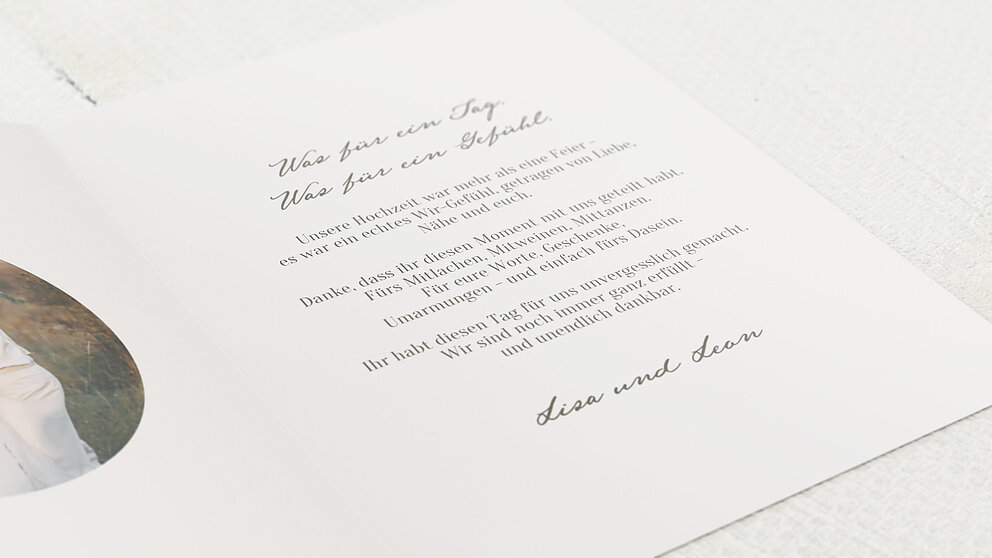 Was für ein Tag.
Was für ein Gefühl.
Unsere Hochzeit war mehr als eine Feier –
es war ein echtes Wir-Gefühl, getragen von Liebe,
Nähe und euch.
Danke, dass ihr diesen Moment mit uns geteilt habt.
Fürs Mitlachen, Mitweinen, Mittanzen.
Für eure Worte, Geschenke,
Umarmungen – und einfach fürs Dasein.
Ihr habt diesen Tag für uns unvergesslich gemacht.
Wir sind noch immer ganz erfüllt –
und unendlich dankbar.
Lisa und Leon